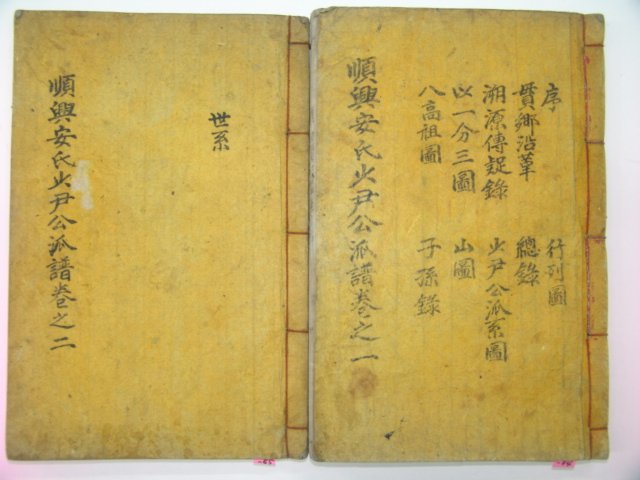 序
貫鄉沿革
溯源傳疑錄
以一分三圖
八高祖圖
行列圖
總錄
少尹公派系圖
山圖
子孫錄
順興安氏少尹公派譜卷之一
世系
順興安氏少尹公派譜卷之二